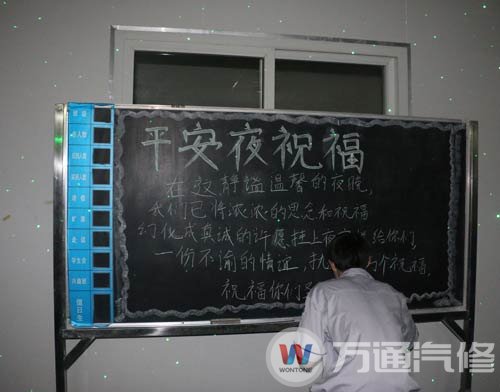 平安夜祝福
在这静谧温馨的夜晚,
我们已将浓浓的思念和祝福
幻化成真诚的许愿挂上夜 给你们
一份不渝的情谊,执 个祝福,
祝福你们圣
班级
学生会
值日生
WONTONE
万通汽修